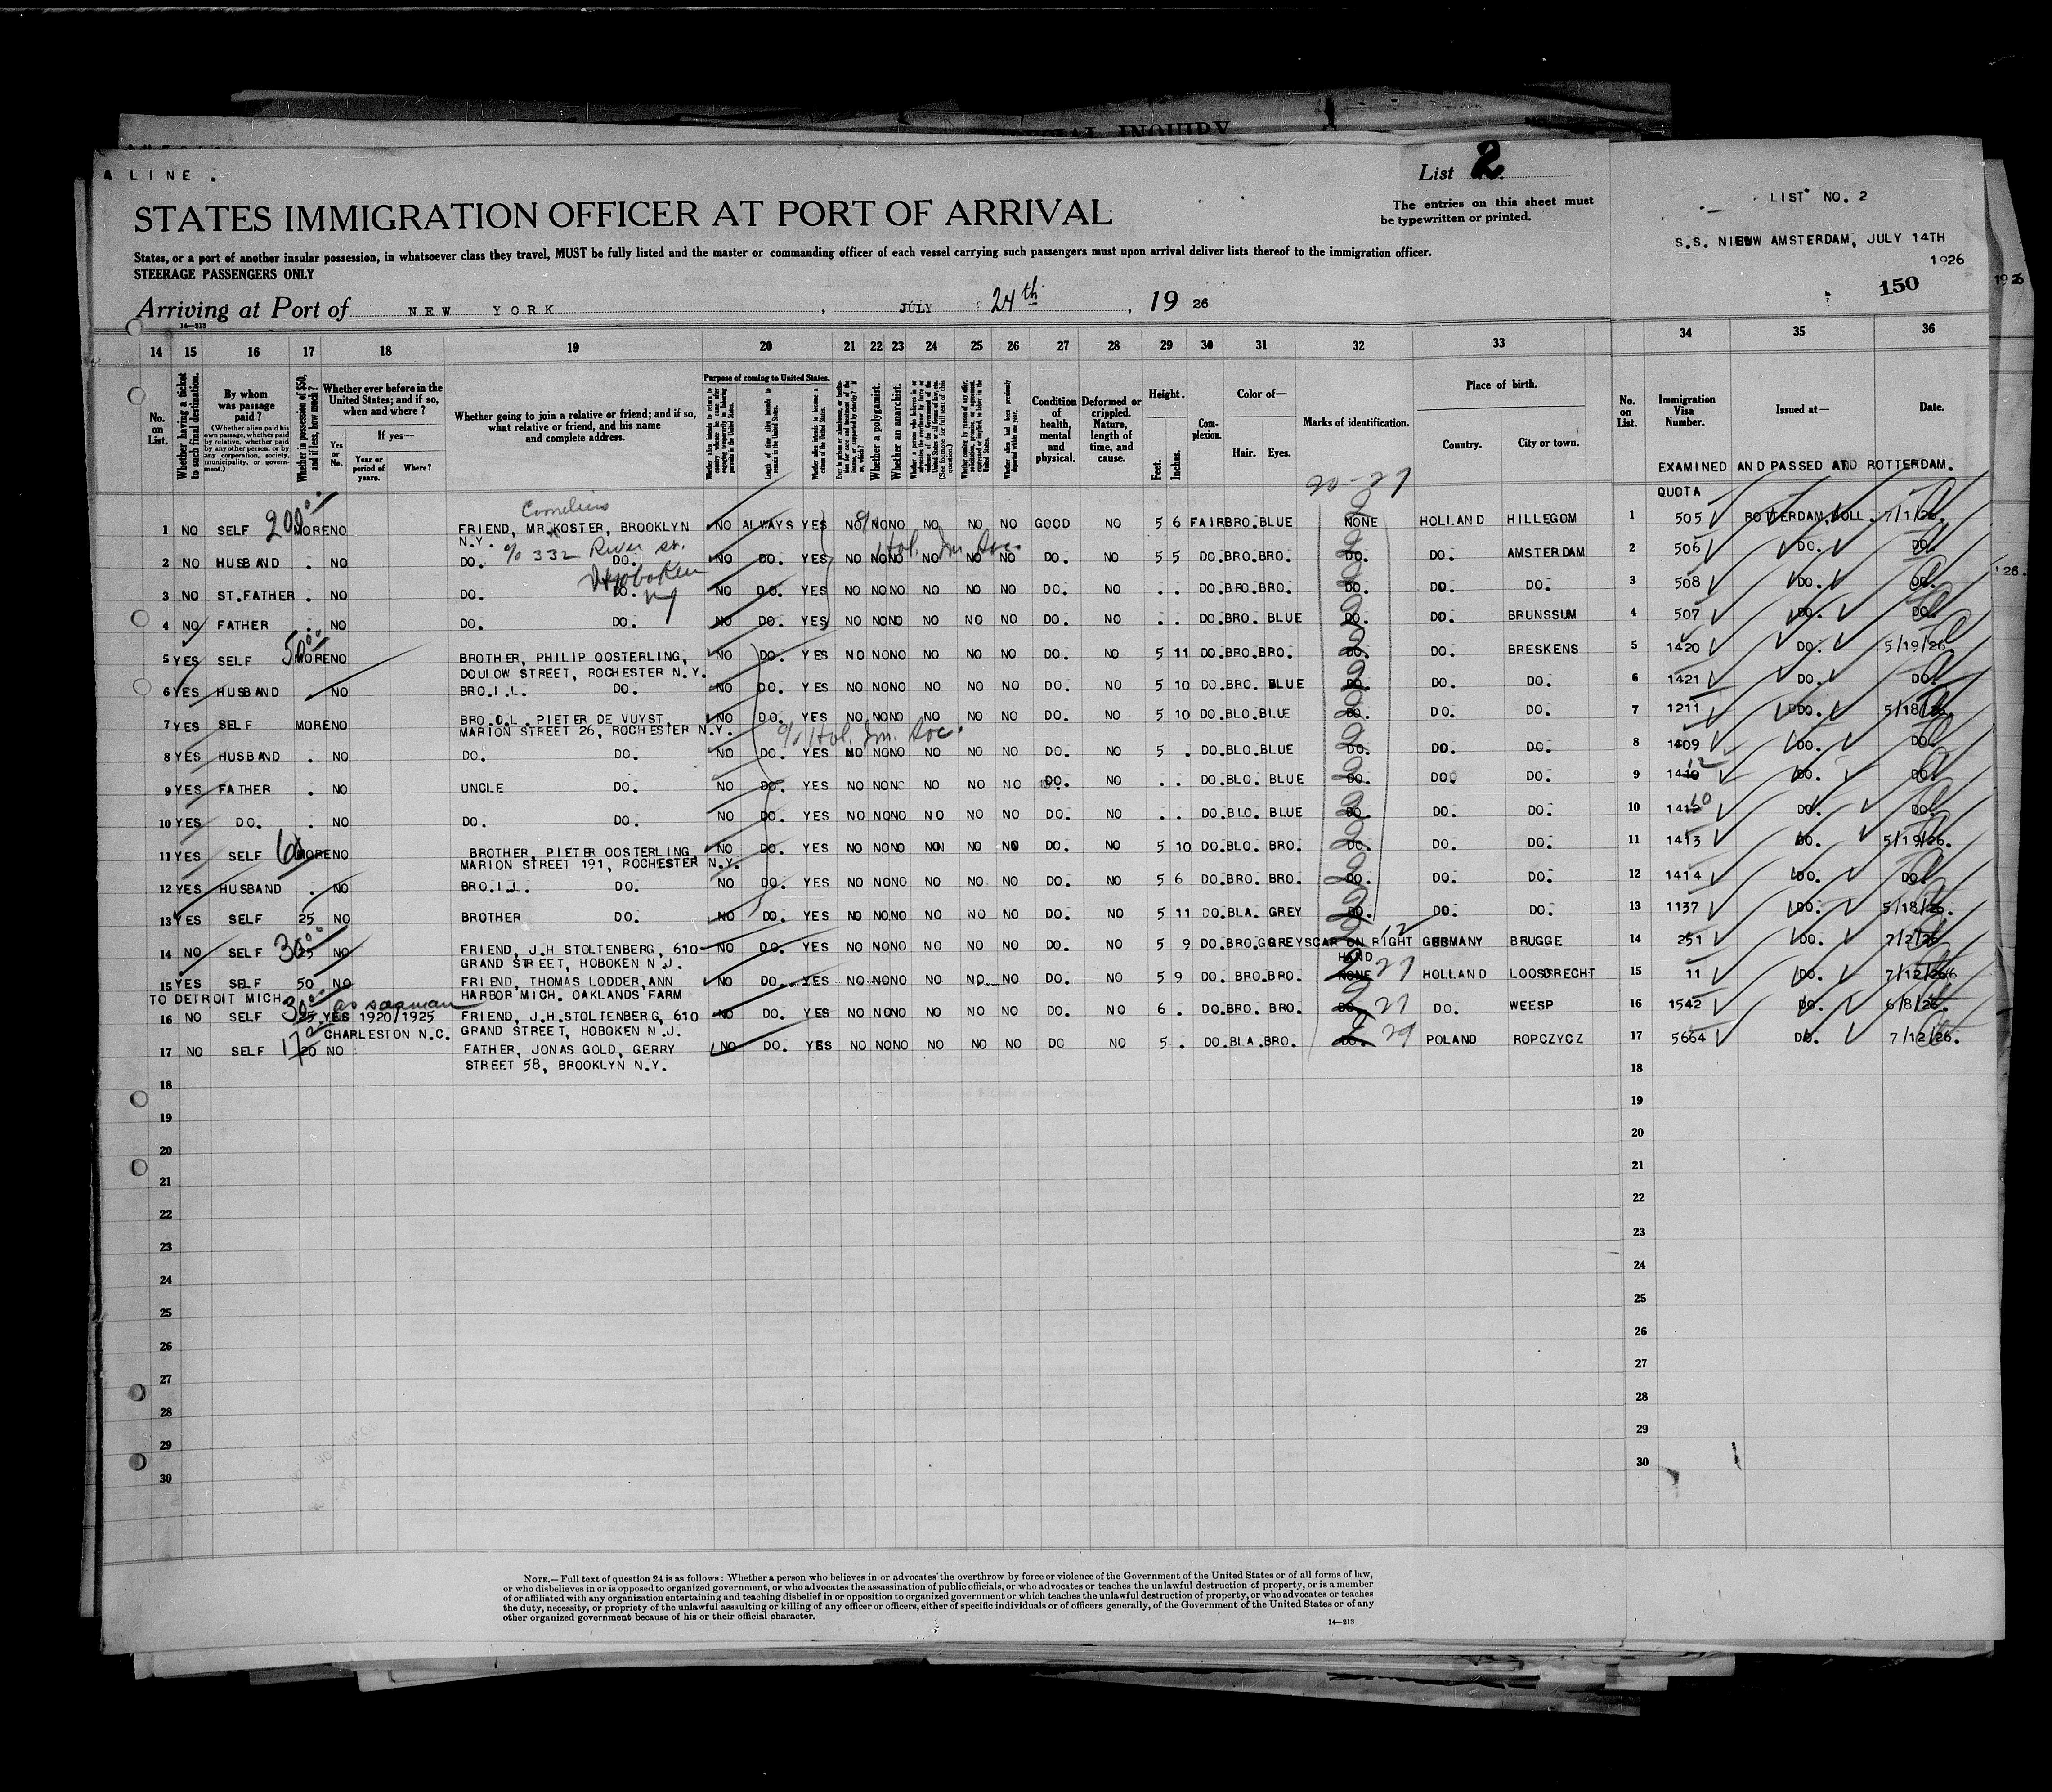 SPECIAL INQUIRY
A LINE .
List 2
The entries on this sheet must
be typewritten or printed.
STATES IMMIGRATION OFFICER AT PORT OF ARRIVAL
States, or a port of another insular possession, in whatsoever class they travel, MUST be fully listed and the master or commanding officer of each vessel carrying such passengers must upon arrival deliver lists thereof to the immigration officer.
STEERAGE PASSENGERS ONLY
Arriving at Port of NEW YORK , JULY 24th , 19 26
14—213
LIST NO. 2
S.S. NIEUW AMSTERDAM, JULY 14TH
1926
150
14 15 16 17 18 19 20 21 22 23 24 25 26 27 28 29 30 31 32 33 34 35 36
No. on List.
Whether having a ticket to such final destination.
By whom was passage paid?
(Whether alien paid his own passage, whether paid by relative, whether paid by any other person, or by any corporation, society, municipality, or government.)
Whether in possession of $50, and if less, how much?
Whether ever before in the United States; and if so, when and where?
Yes or No.
If yes—
Year or period of years.
Where?
Whether going to join a relative or friend; and if so, what relative or friend, and his name and complete address.
Purpose of coming to United States.
Length of time alien intends to remain in the United States.
Whether alien intends to become a citizen of the United States.
Whether a polygamist.
Whether an anarchist.
Condition of health, mental and physical.
Deformed or crippled. Nature, length of time, and cause.
Height.
Feet. Inches.
Complexion.
Color of—
Hair. Eyes.
Marks of identification.
Place of birth.
Country. City or town.
No. on List.
Immigration Visa Number.
Issued at—
Date.
EXAMINED AND PASSED AT ROTTERDAM.
20-27
QUOTA
Cornelius
1 NO SELF 200.00 MORE NO FRIEND, MR KOSTER, BROOKLYN NO ALWAYS YES NO NO NO NO NO NO GOOD NO 5 6 FAIR BRO. BLUE NONE HOLLAND HILLEGOM 1 505 ROTTERDAM HOLL. 7/1/26.
N.Y. c/o 332 River St. Hol. Im. Soc.
2 NO HUSBAND . NO DO. DO. NO DO. YES NO NO NO NO NO NO DO. NO 5 5 DO. BRO. BRO. DO. DO. AMSTERDAM 2 506 DO. DO.
Hoboken NJ
3 NO ST.FATHER . NO DO. DO. NO DO. YES NO NO NO NO NO NO DO. NO . . DO. BRO. BRO. DO. DO. DO. 3 508 DO. DO.
4 NO FATHER . NO DO. DO. NO DO. YES NO NO NO NO NO NO DO. NO . . DO. BRO. BLUE DO. DO. BRUNSSUM 4 507 DO. DO.
5 YES SELF 50.00 MORE NO BROTHER, PHILIP OOSTERLING, NO DO. YES NO NO NO NO NO NO DO. NO 5 11 DO. BRO. BRO. DO. DO. BRESKENS 5 1420 DO. 5/19/26
DOULOW STREET, ROCHESTER N.Y.
6 YES HUSBAND NO BRO.I.L. DO. NO DO. YES NO NO NO NO NO NO DO. NO 5 10 DO. BRO. BLUE DO. DO. DO. 6 1421 DO. DO.
7 YES SELF MORE NO BRO.O.L. PIETER DE VUYST, NO DO. YES NO NO NO NO NO NO DO. NO 5 10 DO. BLO. BLUE DO. DO. DO. 7 1211 DO. 5/18/26.
MARION STREET 26, ROCHESTER N.Y. c/o Hol. Im. Soc.
8 YES HUSBAND . NO DO. DO. NO DO. YES NO NO NO NO NO NO DO. NO 5 . DO. BLO. BLUE DO. DO. DO. 8 1409 DO. DO.
9 YES FATHER . NO UNCLE DO. NO DO. YES NO NO NO NO NO NO DO. NO . . DO. BLO. BLUE DO. DO. DO. 9 1410 12 DO. DO.
10 YES DO. . NO DO. DO. NO DO. YES NO NO NO NO NO NO DO. NO . . DO. BLO. BLUE DO. DO. DO. 10 1412 10 DO. DO.
11 YES SELF 60 MORE NO BROTHER, PIETER OOSTERLING, NO DO. YES NO NO NO NO NO NO DO. NO 5 10 DO. BLO. BRO. DO. DO. DO. 11 1413 DO. 5/19/26.
MARION STREET 191, ROCHESTER N.Y.
12 YES HUSBAND . NO BRO.I.L. DO. NO DO. YES NO NO NO NO NO NO DO. NO 5 6 DO. BRO. BRO. DO. DO. DO. 12 1414 DO. DO.
13 YES SELF 25 NO BROTHER DO. NO DO. YES NO NO NO NO NO NO DO. NO 5 11 DO. BLA. GREY DO. DO. DO. 13 1137 DO. 5/18/26.
14 NO SELF 30.00 25 NO FRIEND, J.H STOLTENBERG, 610 NO DO. YES NO NO NO NO NO NO DO. NO 5 9 DO. BRO. GREY SCAR ON RIGHT HAND GERMANY BRUGGE 14 251 DO. 7/2/26
GRAND STREET, HOBOKEN N.J.
15 YES SELF 50 NO FRIEND, THOMAS LODDER, ANN NO DO. YES NO NO NO NO NO NO DO. NO 5 9 DO. BRO. BRO. NONE 27 HOLLAND LOOSDRECHT 15 11 DO. 7/12/26
TO DETROIT MICH. HARBOR MICH. OAKLANDS FARM
as seaman
16 NO SELF 30.00 25 YES 1920/1925 FRIEND, J.H.STOLTENBERG, 610 NO DO. YES NO NO NO NO NO NO DO. NO 6 . DO. BRO. BRO. DO. 27 DO. WEESP 16 1542 DO. 6/8/26.
CHARLESTON N.C. GRAND STREET, HOBOKEN N.J.
17 NO SELF 17 20 NO FATHER, JONAS GOLD, GERRY NO DO. YES NO NO NO NO NO NO DO NO 5 . DO. BLA. BRO. DO. 29 POLAND ROPCZYCZ 17 5664 DO. 7/12/26.
STREET 58, BROOKLYN N.Y.
18 18
19 19
20 20
21 21
22 22
23 23
24 24
25 25
26 26
27 27
28 28
29 29
30 30
NOTE.—Full text of question 24 is as follows: Whether a person who believes in or advocates the overthrow by force or violence of the Government of the United States or of all forms of law,
or who disbelieves in or is opposed to organized government, or who advocates the assassination of public officials, or who advocates or teaches the unlawful destruction of property, or is a member
of or affiliated with any organization entertaining and teaching disbelief in or opposition to organized government or which teaches the unlawful destruction of property, or who advocates or teaches
the duty, necessity, or propriety of the unlawful assaulting or killing of any officer or officers, either of specific individuals or of officers generally, of the Government of the United States or of any
other organized government because of his or their official character.
14—213